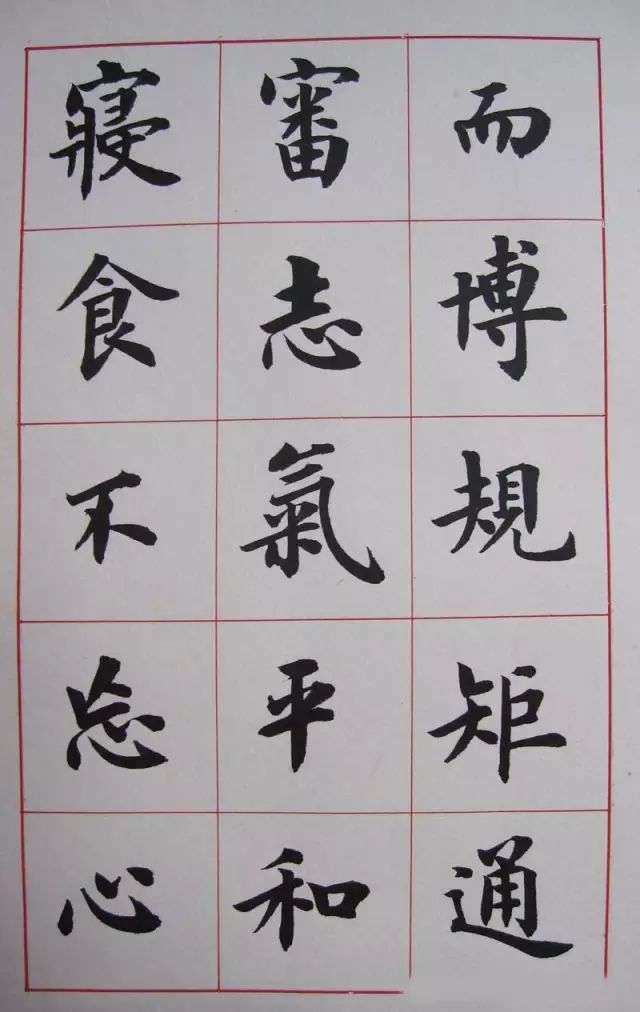 而博規矩通
審志氣平和
寢食不忘心